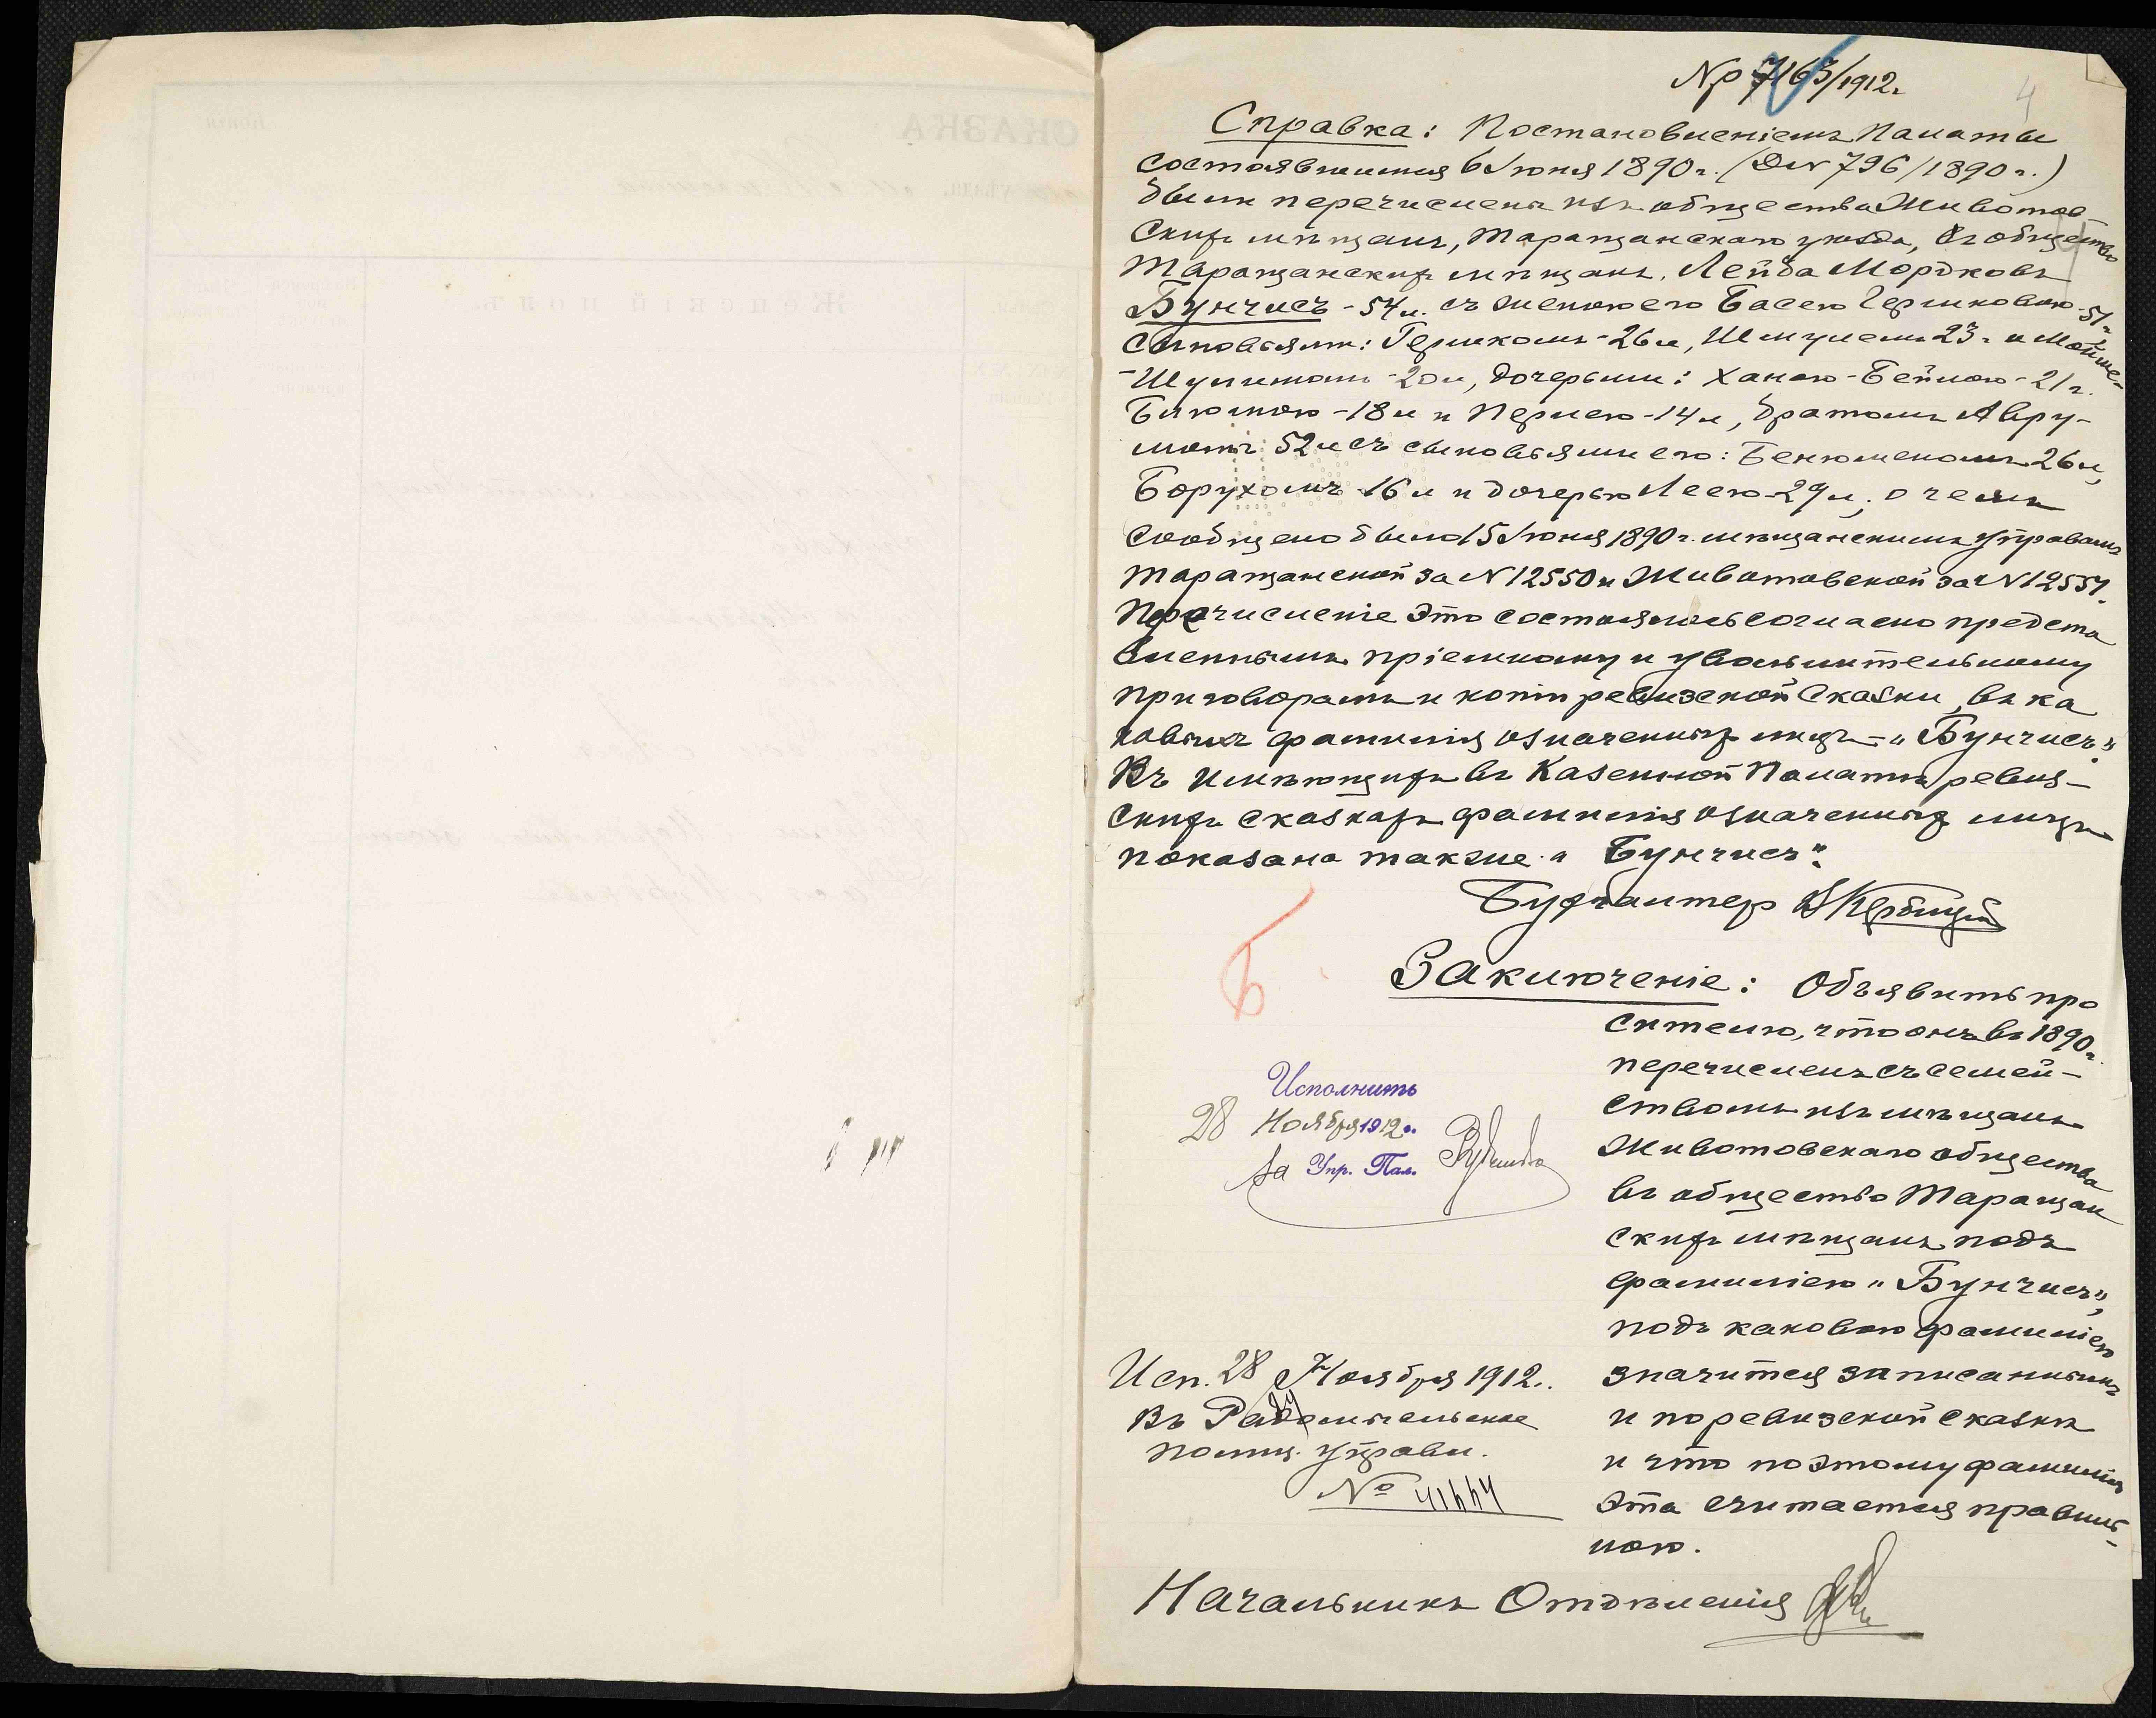 № 7163/1912 г.
4
Справка: Постановленіемъ Палаты
состоявшимся 6 Іюня 1890 г. (Д № 796/1890 г.)
были перечислены изъ общества Животов-
скихъ мѣщанъ, Таращанскаго уѣзда, въ общество
Таращанскихъ мѣщанъ, Лейба Мордковъ
Бунчисъ - 54 л. съ женою его Басею Гершковою 51 г.
сыновьями: Гершкомъ - 26 л, Шмулемъ 23 г. и Мойше-
-Шулимомъ - 20 л, дочерьми: Ханою-Бейлою - 21 г.
Блюмою - 18 л и Перлею - 14 л, братомъ Авру-
момъ 52 л съ сыновьями его: Бенюменомъ 26 л,
Борухомъ 16 л и дочерью Леею - 29 л, о чемъ
сообщено было 15 Іюня 1890 г. мѣщанскимъ управамъ
Таращанской за № 12550 и Животовской за № 12551.
Перечисленіе это состоялось согласно предста
вленнымъ пріемному и увольнительному
приговорамъ и копіи ревизской сказки, въ ка
ковыхъ фамилія означенныхъ лицъ - "Бунчисъ".
Въ имѣющихся въ Казенной Палатѣ ревиз-
скихъ сказкахъ фамилія означенныхъ лицъ
показана также "Бунчисъ".
Бухгалтер
Б
Заключеніе: Объявить про
сителю, что онъ въ 1890 г.
перечисленъ съ семей-
ствомъ изъ мѣщанъ
Животовскаго общества
въ общество Таращан
скихъ мѣщанъ подъ
фамиліею "Бунчисъ",
подъ каковою фамиліею
значится записаннымъ
и по ревизской сказкѣ
и что поэтому фамилія
эта считается правиль-
ною.
Исполнить
28 Ноября 1912 г.
За Упр. Пал.
Исп. 28 Ноября 1912 г.
Въ Радомысльское
полиц. управл.
№
Начальникъ Отдѣленія
СКАЗКА
Женскій полъ